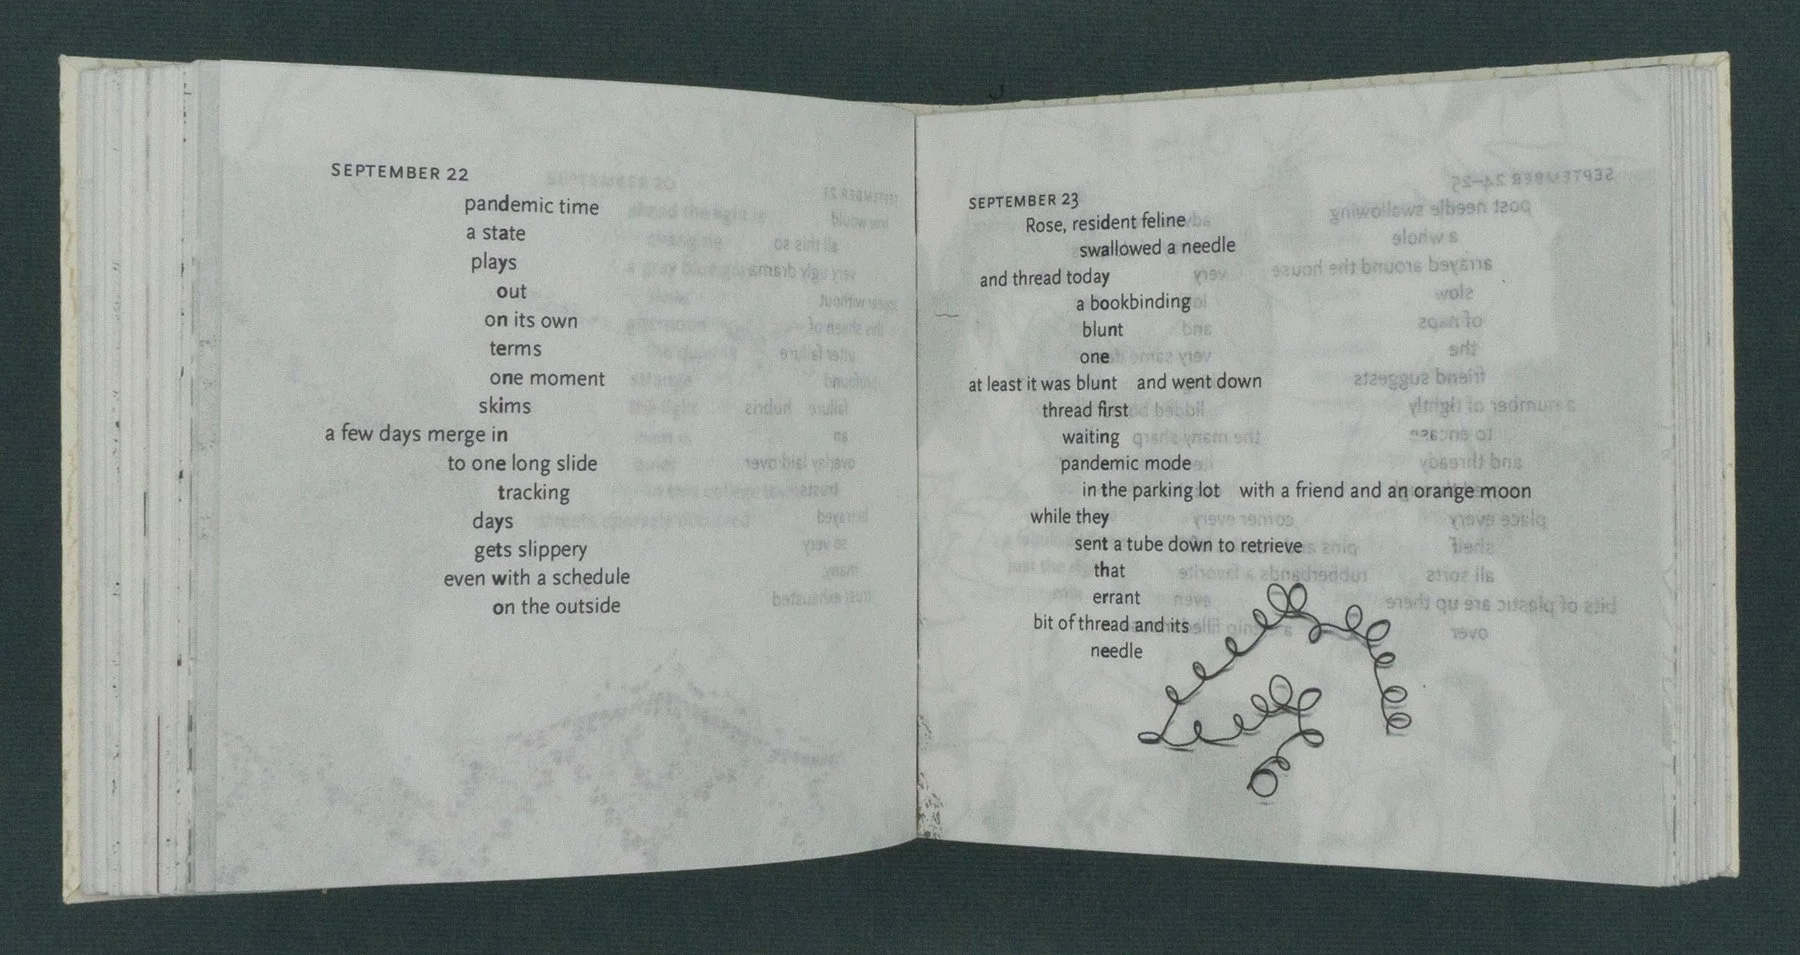 SEPTEMBER 22
pandemic time
a state
plays
out
on its own
terms
one moment
skims
a few days merge in
to one long slide
tracking
days
gets slippery
even with a schedule
on the outside
SEPTEMBER 23
Rose, resident feline
swallowed a needle
and thread today
a bookbinding
blunt
one
at least it was blunt and went down
thread first
waiting
pandemic mode
in the parking lot with a friend and an orange moon
while they
sent a tube down to retrieve
that
errant
bit of thread and its
needle